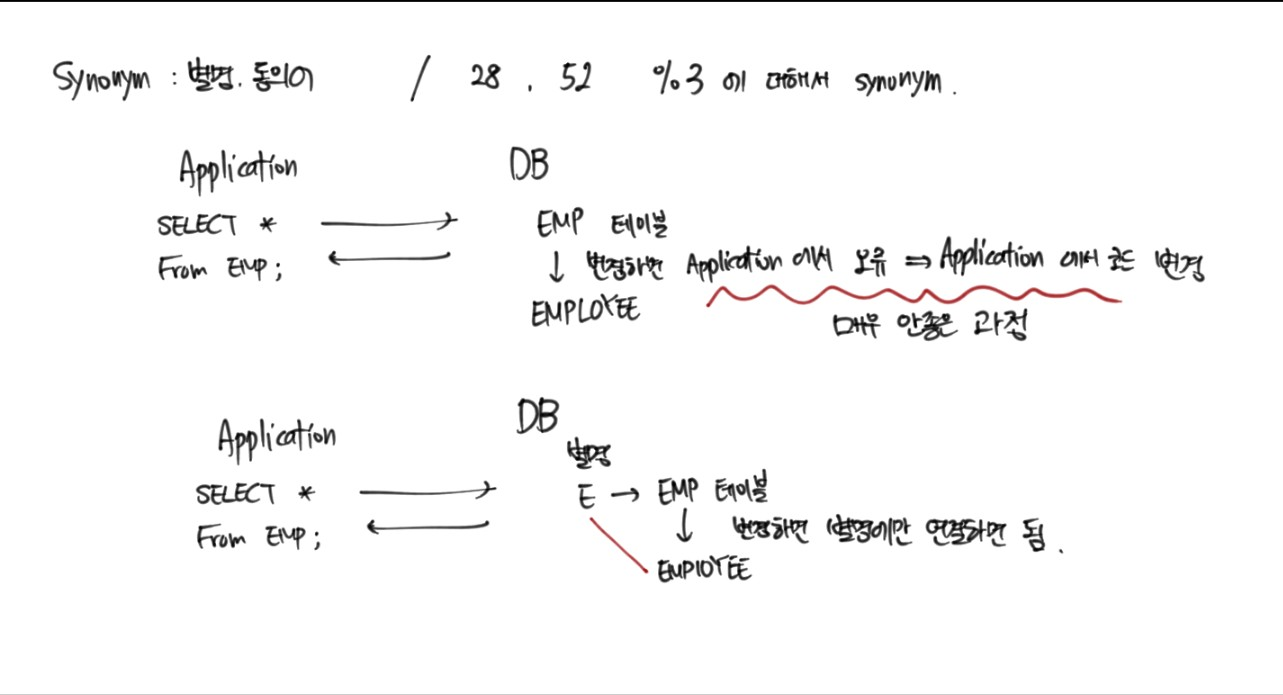 Synonym : 별명. 동의어 / 28 . 52 %3 에 대해서 synonym.
Application DB
SELECT * EMP 테이블
From EMP; ↓ 변경하면 Application 에서 오류 ⇒ Application 에서 코드 변경
EMPLOYEE
매우 안좋은 과정
Application DB
별명
SELECT * E → EMP 테이블
From EMP; ↓ 변경하면 별명에만 연결하면 됨.
EMPlOYEE